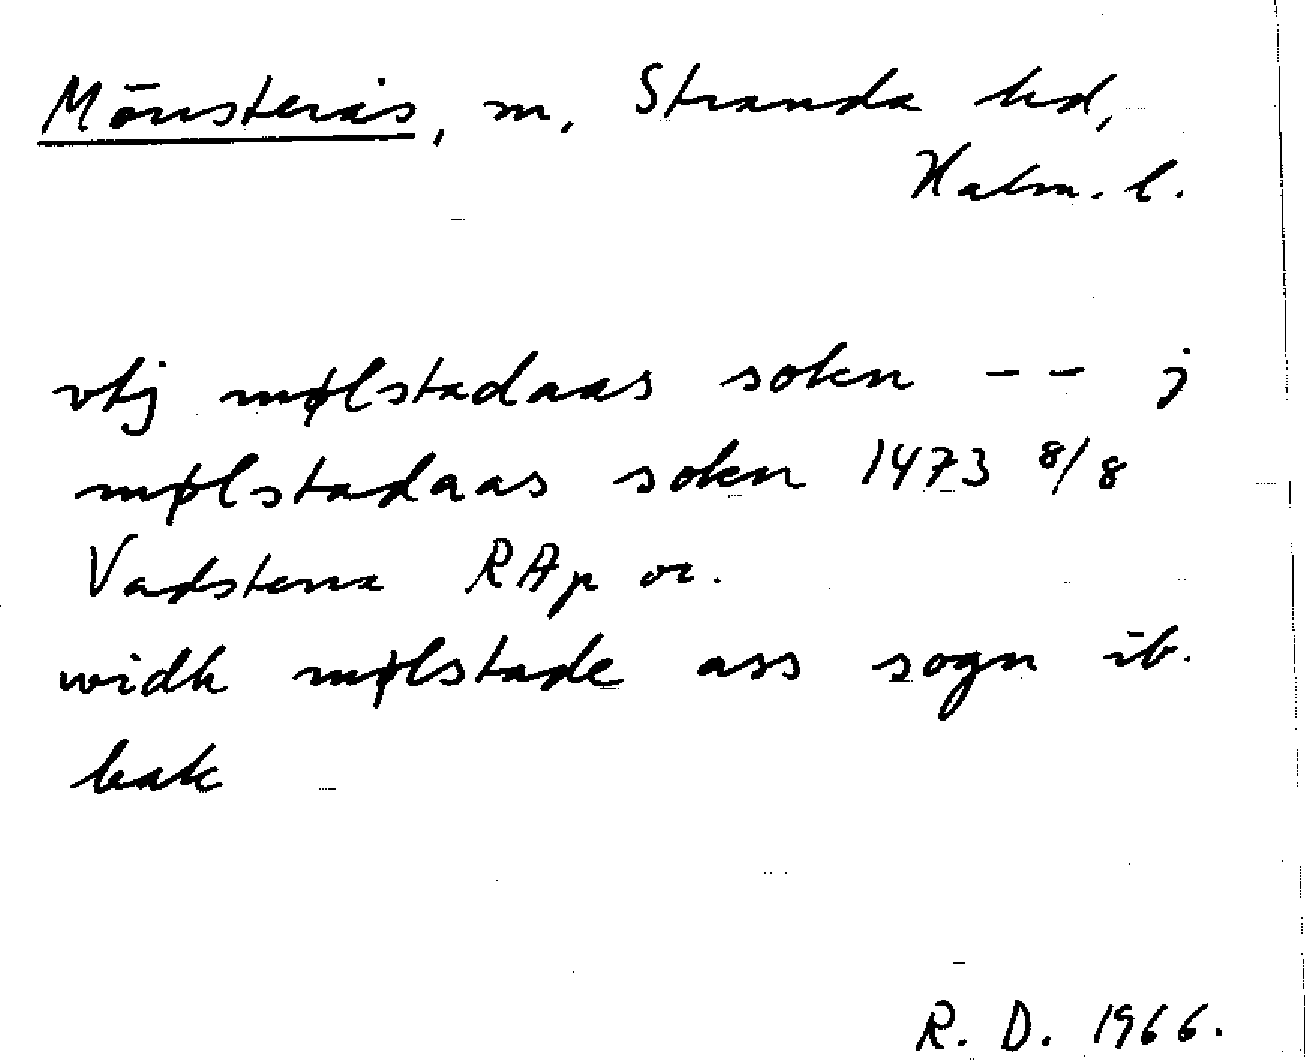 Mönsterås, sn, Stranda hd,
Kalm. l.
vtj mølstadaas sokn -- j
mølstadaas sokn 1473 8/8
Vadstena RAp or.
widh mølstade ass sogn ib.
bak
R. D. 1966.